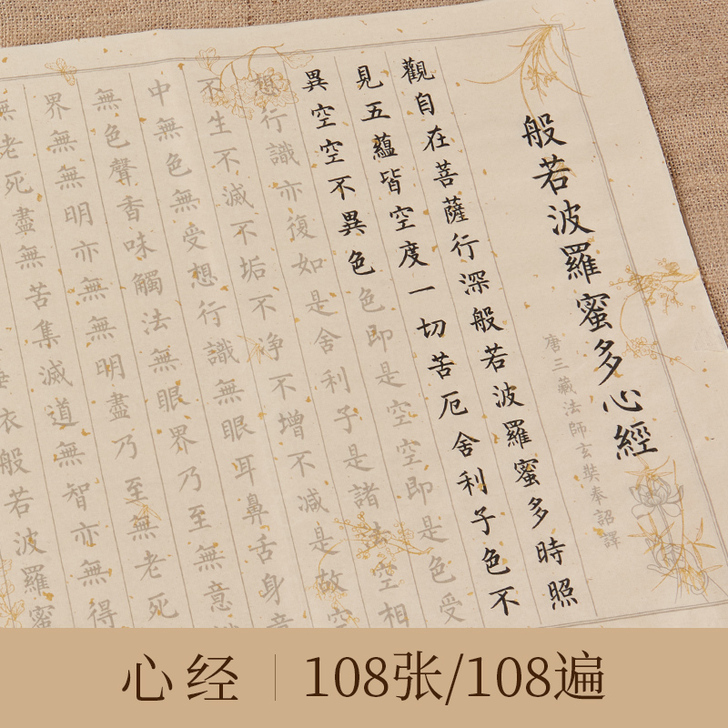 般若波羅蜜多心經
唐三藏法師玄奘奉詔譯
觀自在菩薩行深般若波羅蜜多時照
見五蘊皆空度一切苦厄舍利子色不
異空空不異色色即是空空即是色受
想行識亦復如是舍利子是諸法空相
不生不滅不垢不淨不增不減是故空
中無色無受想行識無眼耳鼻舌身意
無色聲香味觸法無眼界乃至無意
界無無明亦無無明盡乃至無老死
無老死盡無苦集滅道無智亦無得
般若波羅蜜
心经
108张/108遍